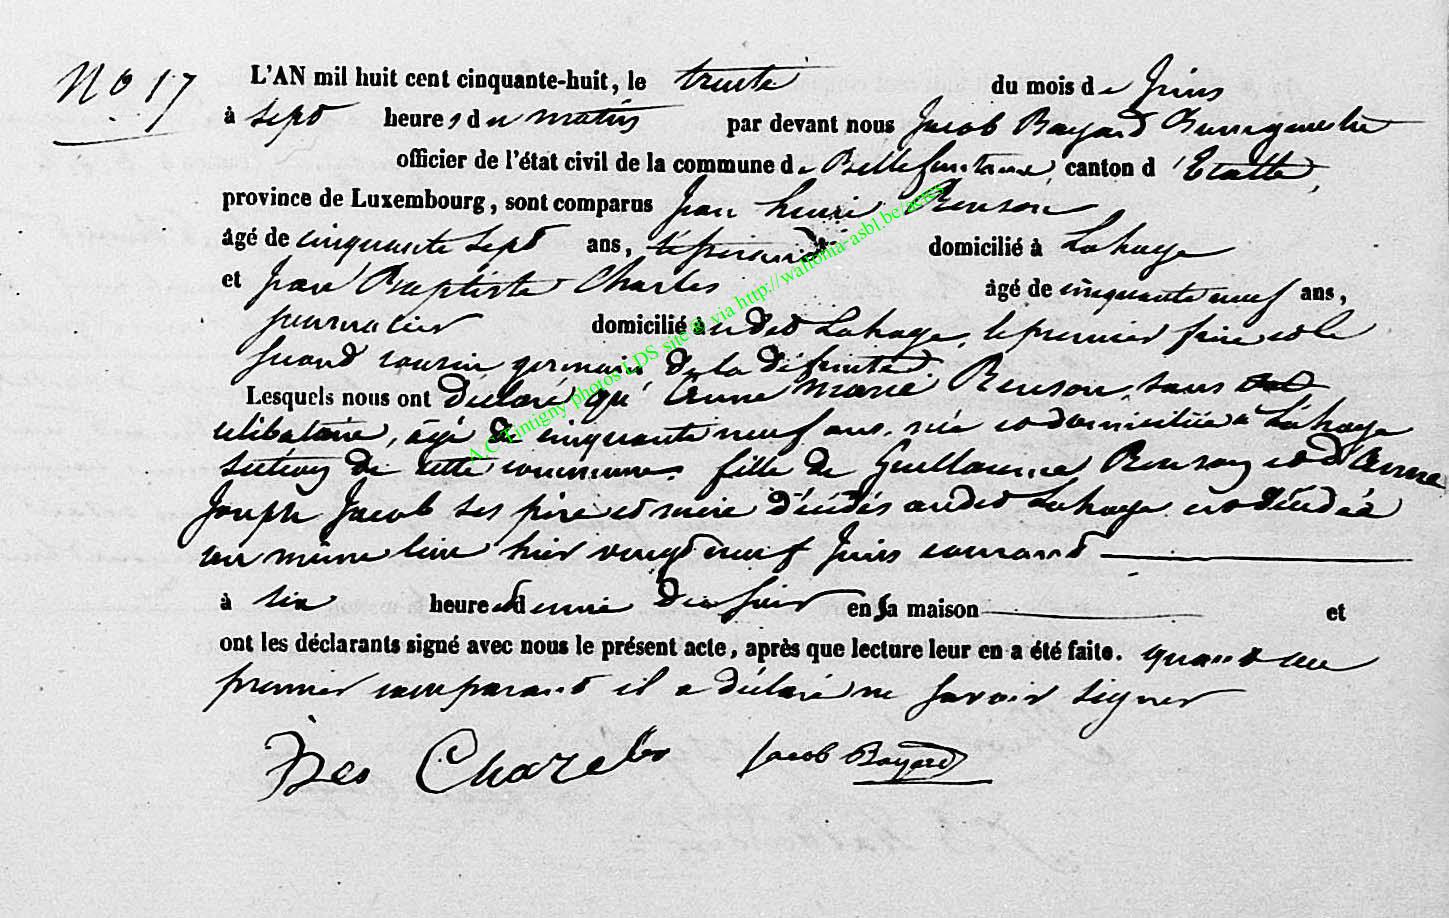 No 17
L'AN mil huit cent cinquante-huit, le trente du mois de Juin
à sept heures du matin par devant nous Jacob Bayard Bourgmestre
officier de l'état civil de la commune de Bellefontaine, canton d'Etalle,
province de Luxembourg, sont comparus Jean henri Renson
âgé de cinquante sept ans, tisserand domicilié à Lahage
et Jean Baptiste Charles âgé de cinquante neuf ans,
journalier domicilié audit Lahage, le premier frère et le
second cousin germain de la défunte
Lesquels nous ont déclaré qu'Anne marie Renson, sans
célibataire, âgé de cinquante neuf ans, née et domiciliée à Lahage
section de cette commune, fille de Guillaume Renson et d'Anne
Joseph Jacob ses père et mère décédés audit Lahage est décédée
au même lieu hier vingt neuf Juin courant
à six heures et demie du soir en sa maison et
ont les déclarants signé avec nous le présent acte, après que lecture leur en a été faite. quant au
premier comparant il a déclaré ne savoir signer
Charles Jacob Bayard
A.C. Tintigny photos LDS site via http://wallonia-asbl.be/actes